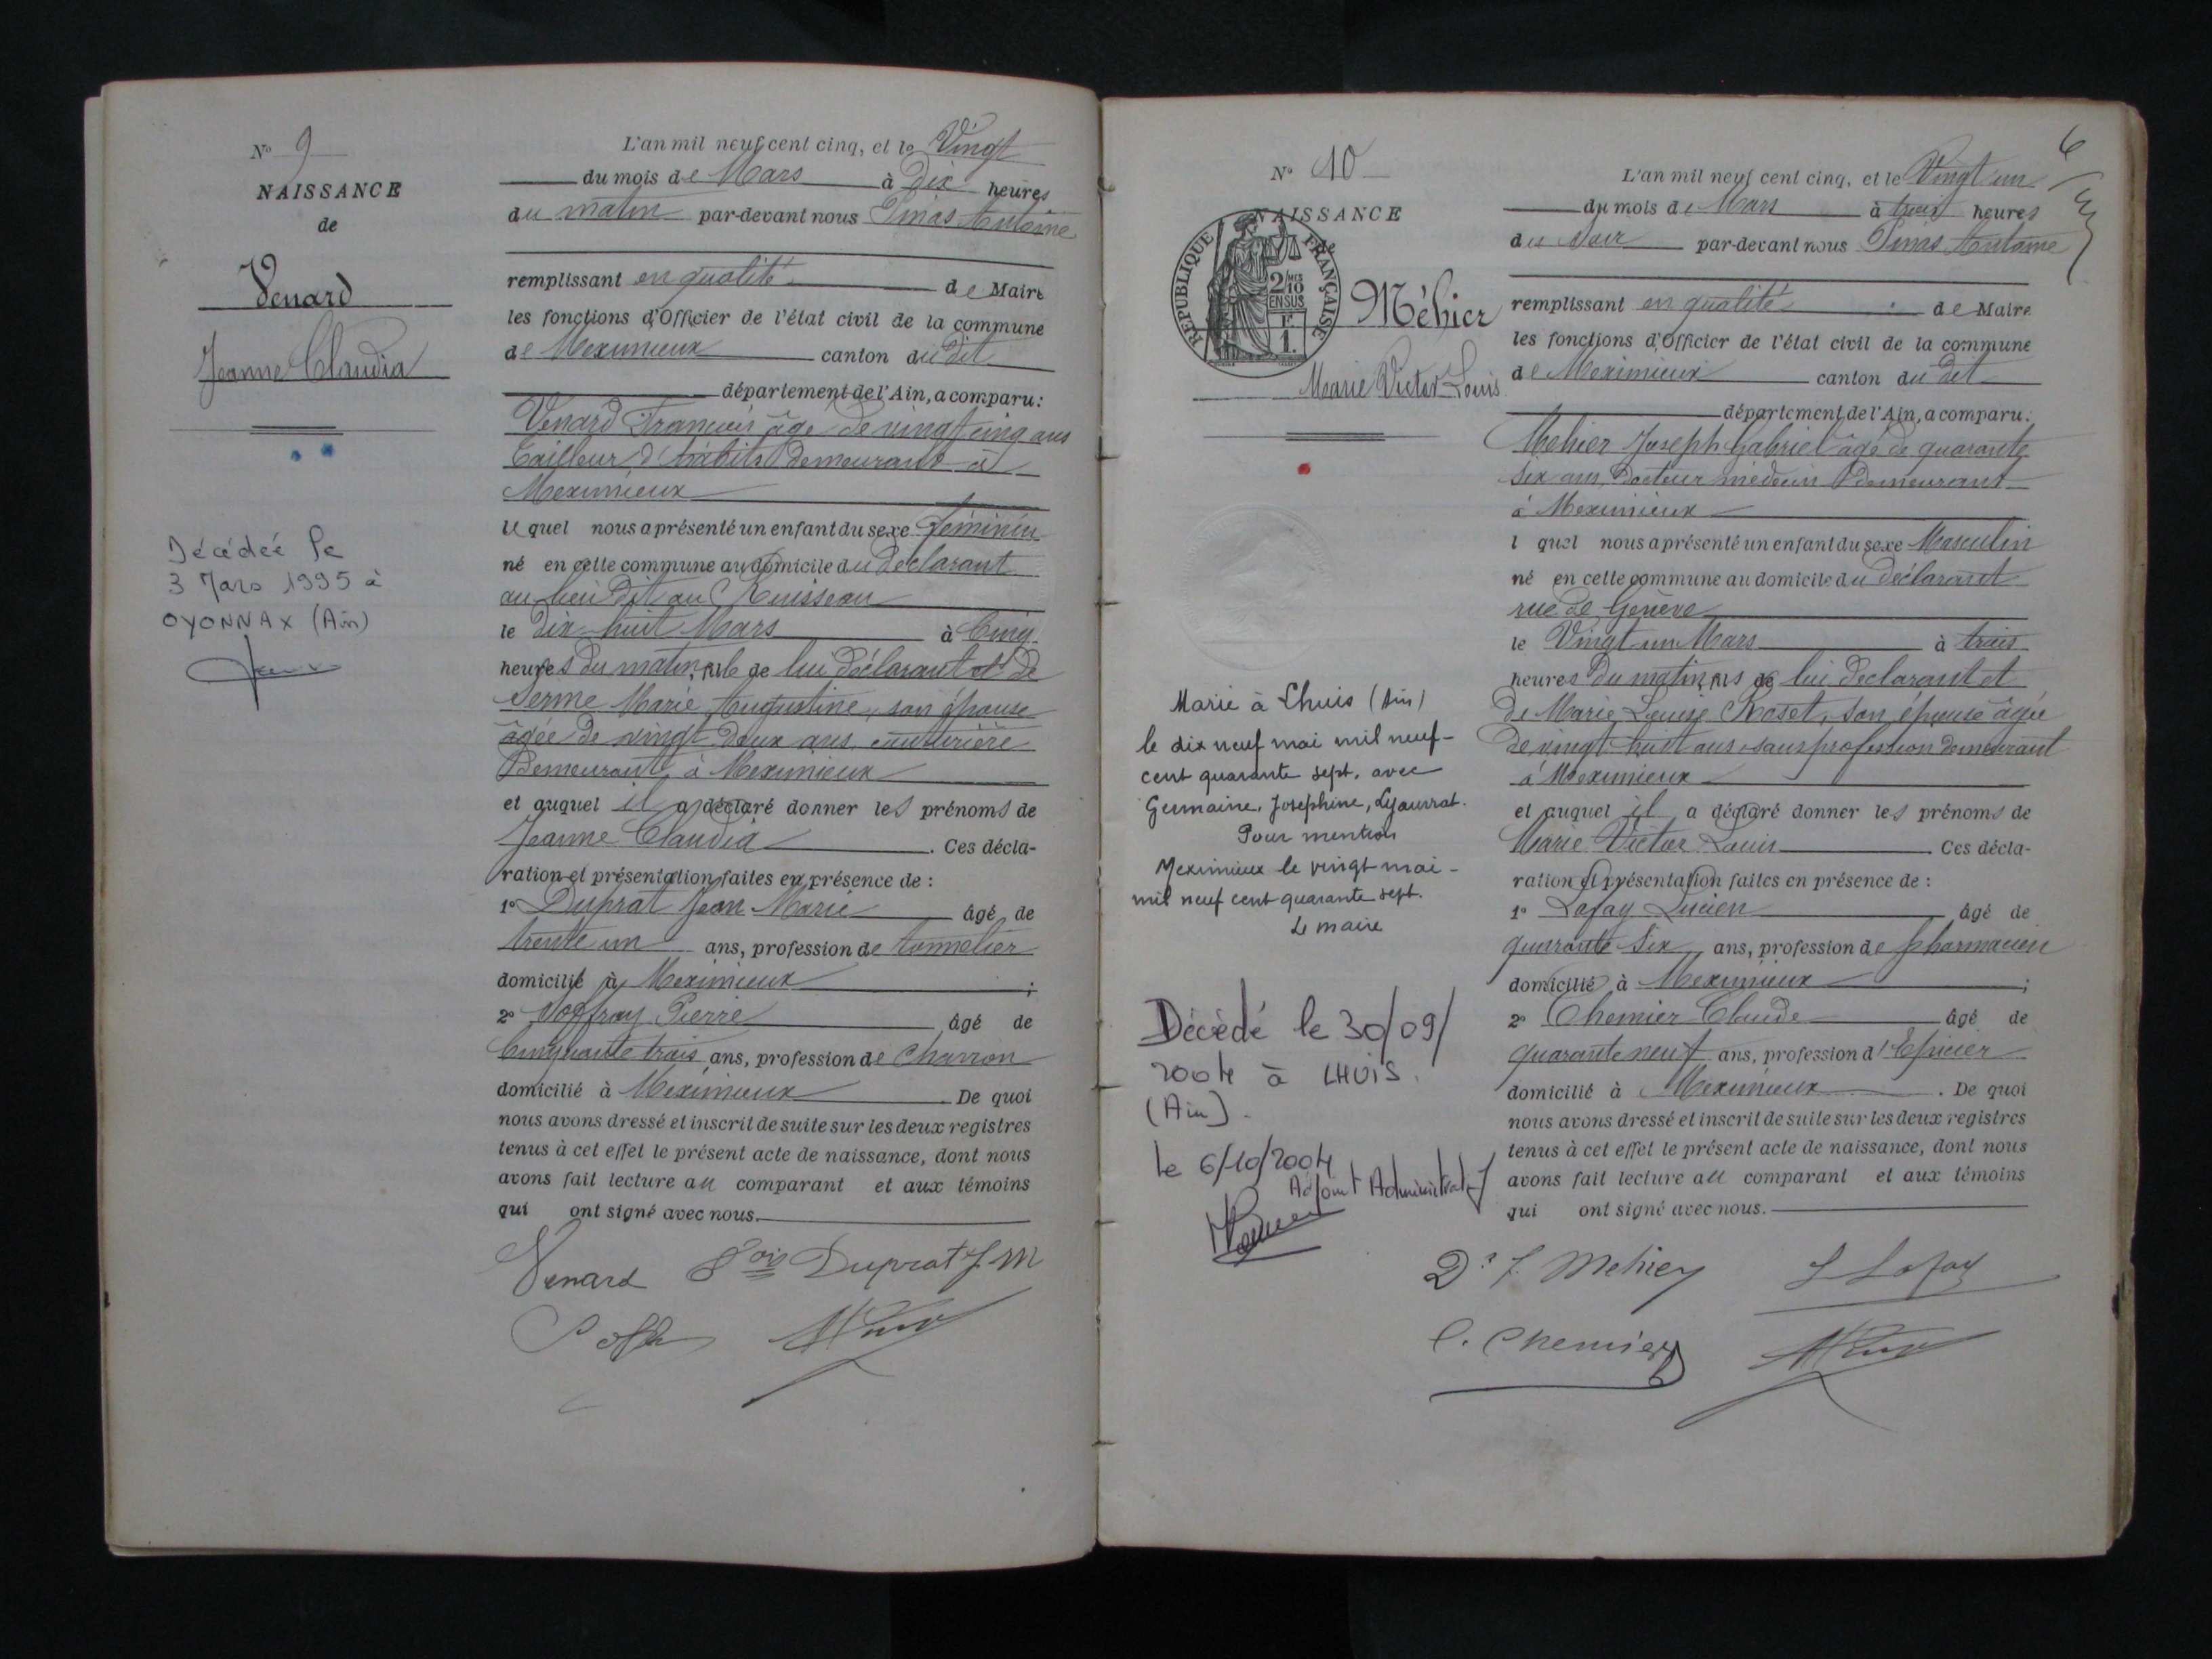 N° 9
NAISSANCE
de
Venard
Jeanne Claudia
Décédée le
3 Mars 1995 à
OYONNAX (Ain)
L'an mil neuf cent cinq, et le Vingt
du mois de Mars à Dix heures
du matin par-devant nous Pinas Antoine
remplissant en qualité de Maire
les fonctions d'Officier de l'état civil de la commune
de Meximieux canton du dit
département de l'Ain, a comparu:
Venard François âgé de vingt cinq ans
tailleur d'habits demeurant à
Meximieux
lequel nous a présenté un enfant du sexe féminin
né en cette commune au domicile du déclarant
au lieu dit au Ruisseau
le Dix huit Mars à Cinq
heures du matin, fille de lui déclarant et de
Marie Augustine, son épouse
âgée de vingt deux ans, couturière
demeurant à Meximieux
et auquel il a déclaré donner les prénoms de
Jeanne Claudia . Ces décla-
ration et présentation faites en présence de :
1° Duprat Jean Marie âgé de
trente un ans, profession de tonnelier
domicilié à Meximieux ;
2° Joffray Pierre âgé de
Cinquante trois ans, profession de charron
domicilié à Meximieux De quoi
nous avons dressé et inscrit de suite sur les deux registres
tenus à cet effet le présent acte de naissance, dont nous
avons fait lecture au comparant et aux témoins
qui ont signé avec nous.
Venard Fois Duprat J. M
N° 10
NAISSANCE
de
RÉPUBLIQUE FRANÇAISE
2/10 EN SUS
1 F.
Méhier
Marie Victor Louis
Marié à Lhuis (Ain)
le dix neuf mai mil neuf-
cent quarante sept, avec
Germaine, Joséphine,
Pour mention
Meximieux le vingt mai -
mil neuf cent quarante sept.
Le maire
Décédé le 30/09/
2004 à LHUIS.
(Ain).
Le 6/10/2004
Adjoint Administratif
6
L'an mil neuf cent cinq, et le Vingt un
du mois de Mars à trois heures
du soir par-devant nous Pinas Antoine
remplissant en qualité de Maire
les fonctions d'Officier de l'état civil de la commune
de Meximieux canton du dit
département de l'Ain, a comparu:
Mehier Joseph Gabriel âgé de quarante
six ans, Docteur médecin demeurant
à Meximieux
l quel nous a présenté un enfant du sexe Masculin
né en cette commune au domicile du déclarant
rue de Genève
le Vingt un Mars à trois
heures du matin, fils de lui déclarant et
de Marie Louise, son épouse âgée
de vingt huit ans, sans profession demeurant
à Meximieux
et auquel il a déclaré donner les prénoms de
Marie Victor Louis Ces décla-
ration et présentation faites en présence de :
1° Lafay Lucien âgé de
quarante six ans, profession de pharmacien
domicilié à Meximieux ;
2° Chemier Claude âgé de
quarante neuf ans, profession d'Epicier
domicilié à Meximieux . De quoi
nous avons dressé et inscrit de suite sur les deux registres
tenus à cet effet le présent acte de naissance, dont nous
avons fait lecture au comparant et aux témoins
qui ont signé avec nous.
Dr J. Mehier L Lafay
C. Chemier